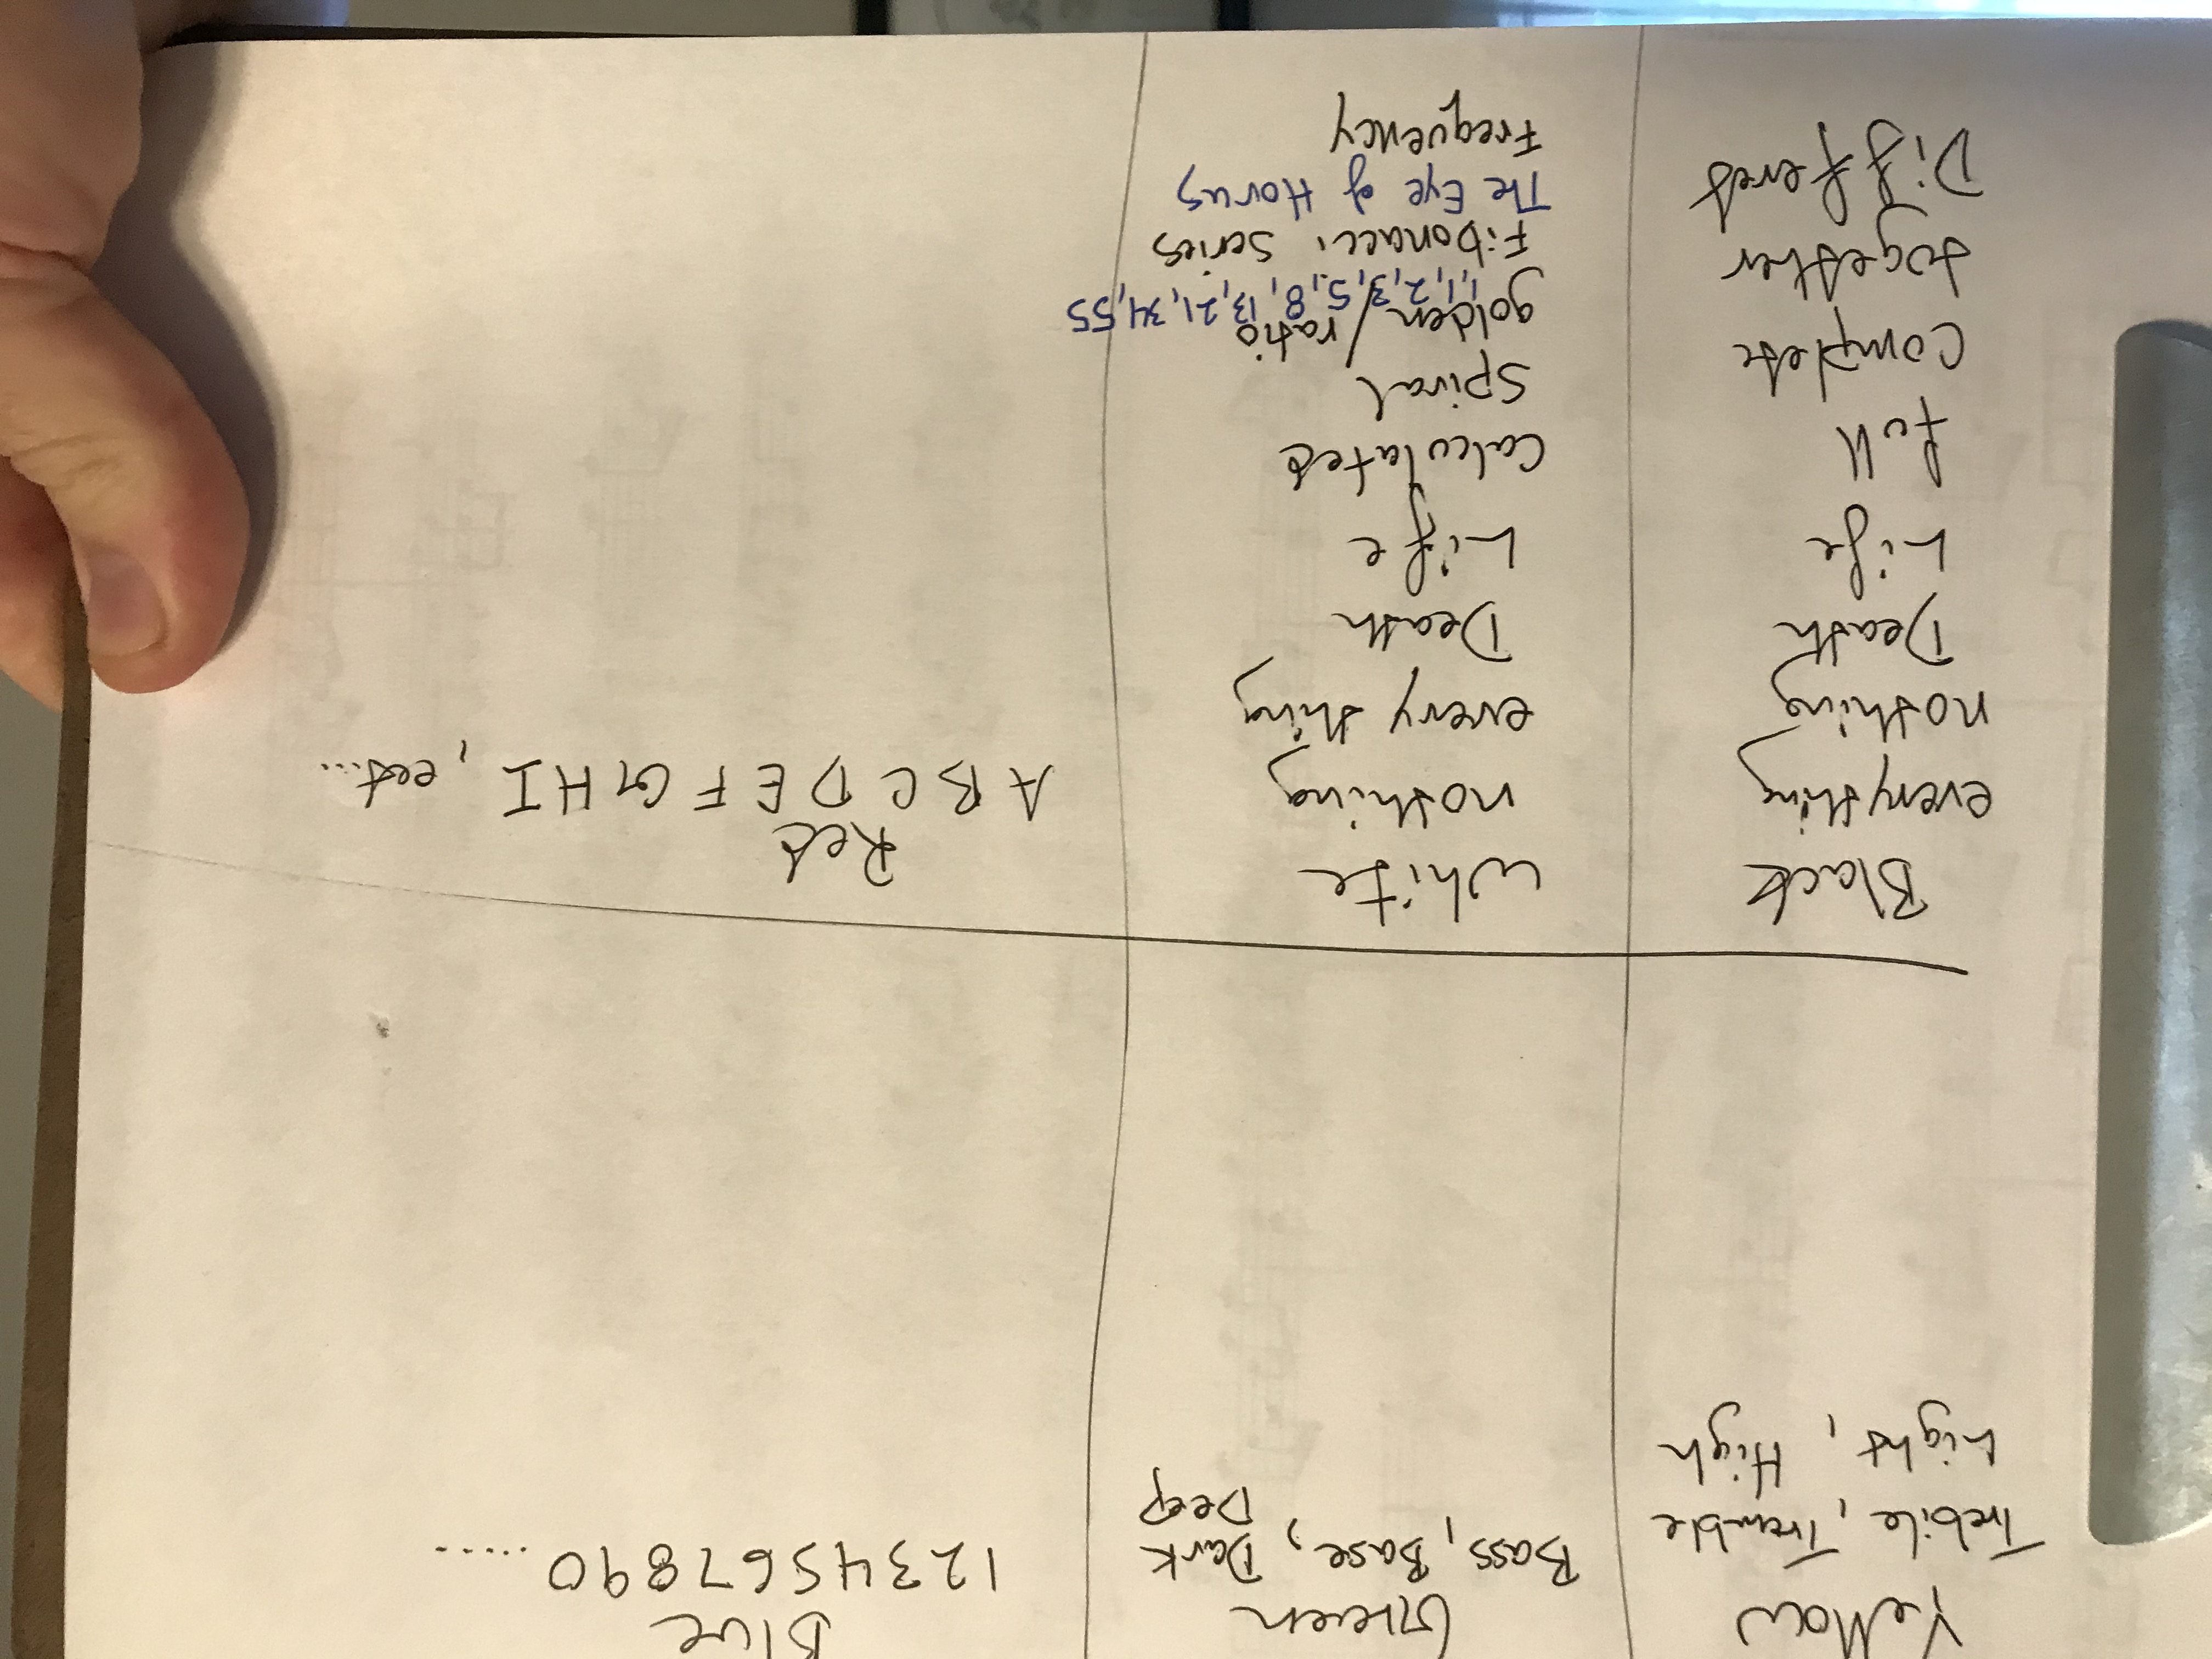 Yellow
Trebile, Tremble
Light, High
Green
Bass, Base, Dark
Deep
Blue
1234567890.....
Black
everything
nothing
Death
Life
full
Complete
together
Differet
White
nothing
every thing
Death
Life
Calculated
Spiral
golden/ratio
1,1,2,3,5,8,13,21,34,55
Fibonacci Series
The Eye of Horus
Frequency
Red
A B C D E F G H I, ect...